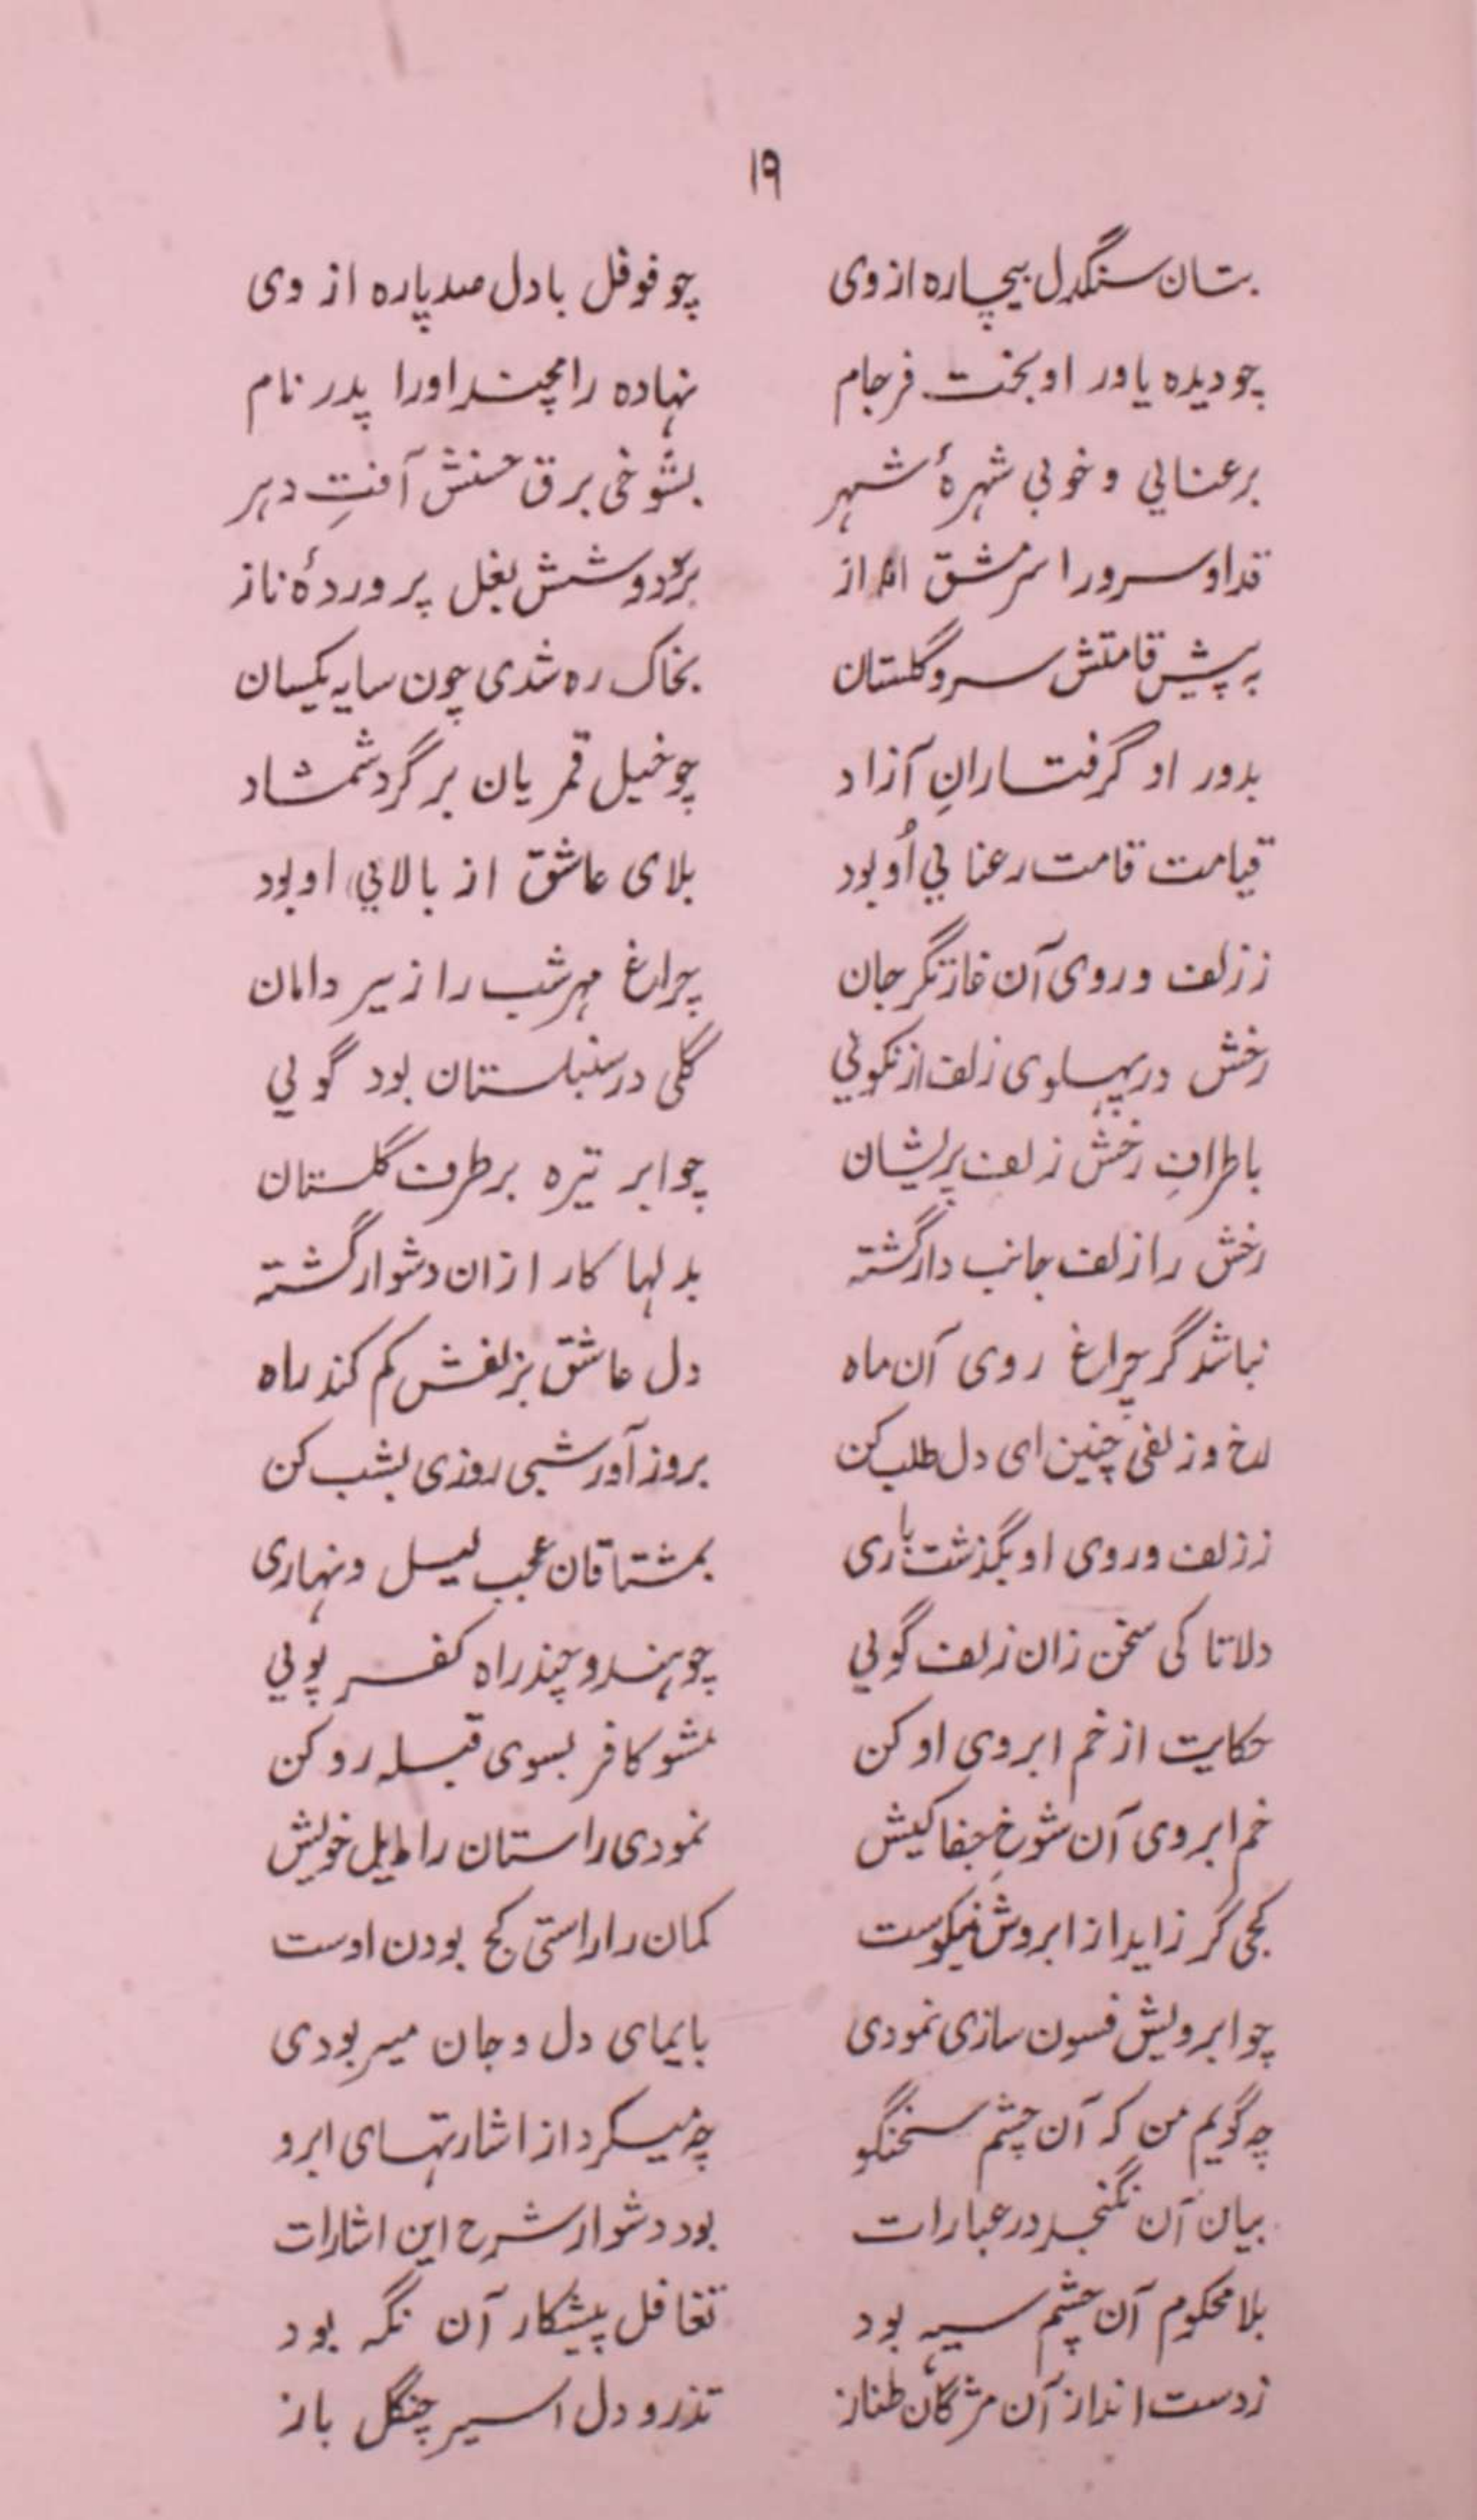 ۱۹
بتان سنگدل بیچاره از وی چو فوفل بادل صد پاره از وی
چو دیده یاور او بخت فرجام نهاده رامچند او را پدر نام
برعنایي و خوبي شهرهٔ شهر بشوخی برق حسنش آفتِ دهر
قد او سرو را سرمشق انداز بر و دوشش بغل پروردهٔ ناز
به پیش قامتش سرو گلستان بخاک ره شدی چون سایه یکسان
بدور او گرفتارانِ آزاد چو خیل قمریان بر گرد شمشاد
قیامت قامت رعنایي اُو بود بلای عاشق از بالایي او بود
ز زلف و روی آن غارتگر جان چراغ مهر شب را زیر دامان
رخش در پهلوی زلف از نکویي گلی در سنبلستان بود گویي
باطرافِ رخش زلف پریشان چو ابر تیره بر طرف گلستان
رخش را زلف جانب دار گشته بدلها کار ازان دشوار گشته
نباشد گر چراغ روی آن ماه دل عاشق بزلفش گم کند راه
رخ و زلفی چنین ای دل طلب کن بروز آور شبی روزی بشب کن
ز زلف و روی او بگذشت باری بمشتاقان عجب لیل و نهاری
دلا تا کی سخن زان زلف گویي چو هندو چند راه کفر پویي
حکایت از خم ابروی او کن مشو کافر بسوی قبله رو کن
خم ابروی آن شوخِ جفا کیش نمودی راستان را مایل خویش
کجی گر زاید از ابروش نیکوست کمان را راستی کج بودن اوست
چو ابرویش فسون سازی نمودی بایمای دل و جان میربودی
چه گویم من که آن چشم سخنگو چه میکرد از اشارتهای ابرو
بیان آن نگنجد در عبارات بود دشوار شرح این اشارات
بلا محکوم آن چشم سیه بود تغافل پیشکار آن نگه بود
ز دست انداز آن مژگان طناز تذرو دل اسیر چنگل باز